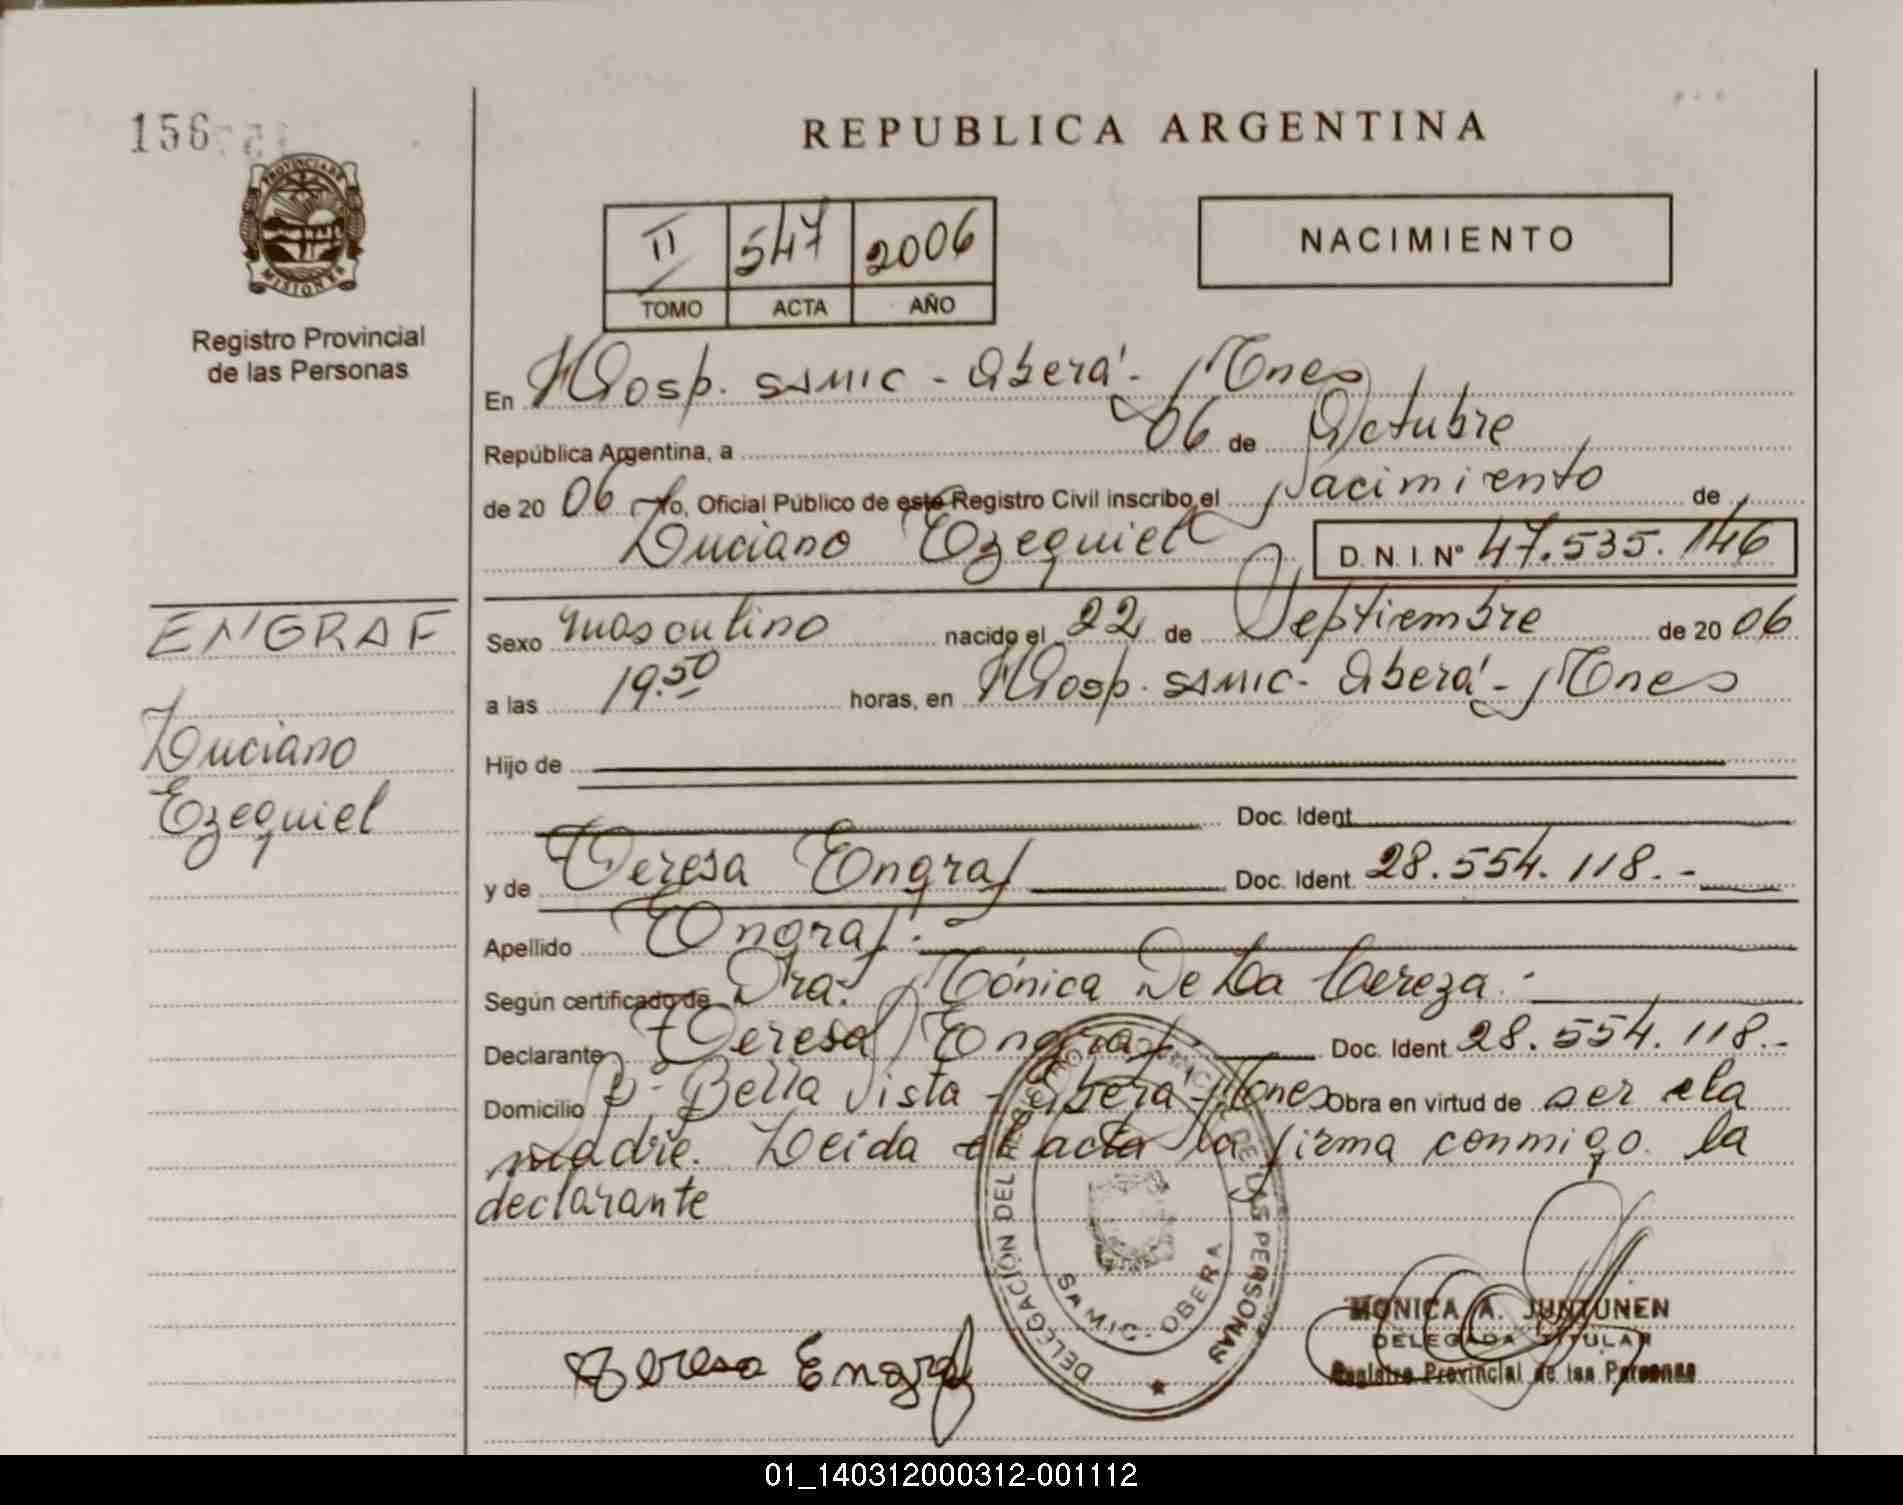 156
REPUBLICA ARGENTINA
PROVINCIA DE
MISIONES
Registro Provincial
de las Personas
II 547 2006
TOMO ACTA AÑO
NACIMIENTO
En Hosp. SAMIC - Oberá - Mnes
República Argentina, a 06 de Octubre
de 20 06 Yo, Oficial Público de este Registro Civil inscribo el Nacimiento de
Luciano Ezequiel D. N. I. Nº 47.535.146
ENGRAF
Luciano
Ezequiel
Sexo masculino nacido el 22 de Septiembre de 20 06
a las 19.50 horas, en Hosp. SAMIC - Oberá - Mnes
Hijo de
Doc. Ident.
y de Teresa Engraf Doc. Ident. 28.554.118.-
Apellido Engraf.-
Según certificado de Dra. Mónica De La Cereza.-
Declarante Teresa Engraf.- Doc. Ident. 28.554.118.-
Domicilio Bº Bella Vista - Oberá - Mnes Obra en virtud de ser la
madre. Leida el acta la firma conmigo la
declarante
DELEGACIÓN DEL REGISTRO PROVINCIAL DE LAS PERSONAS
SAMIC - OBERA
Teresa Engraf
MONICA A. JUNTUNEN
DELEGADA TITULAR
Registro Provincial de las Personas
01_140312000312-001112